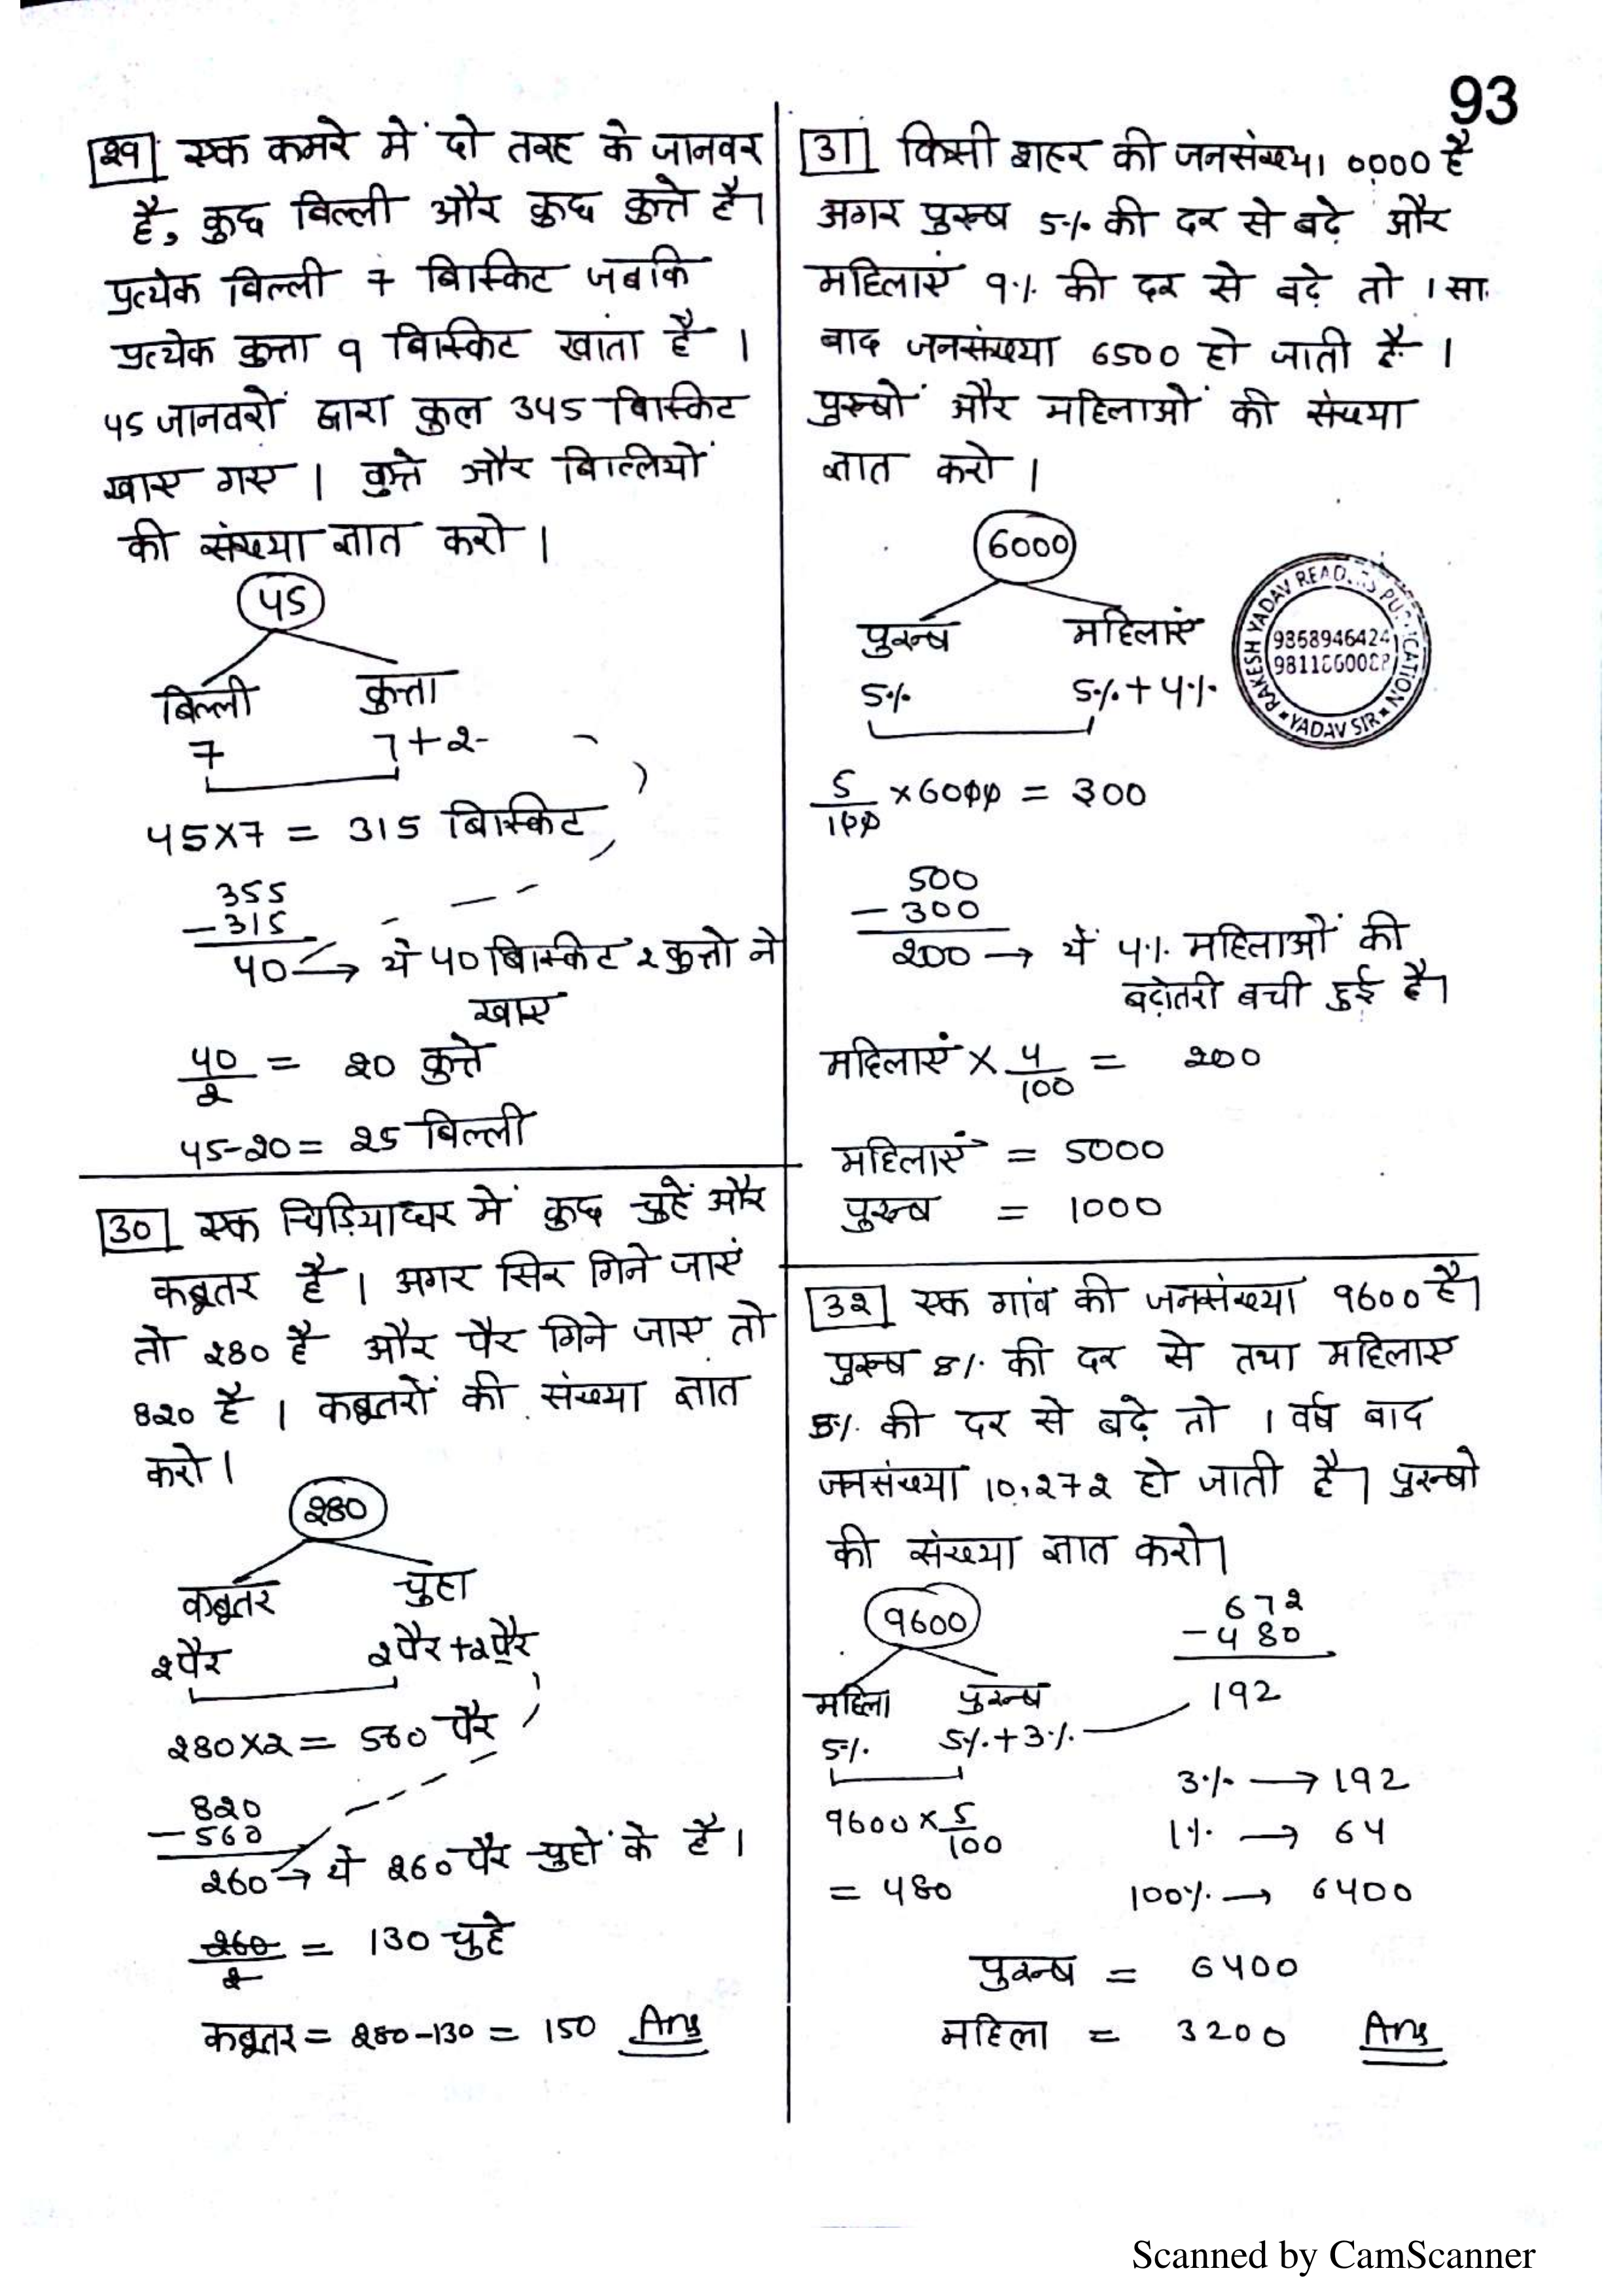 93
29 एक कमरे में दो तरह के जानवर
है, कुछ बिल्ली और कुछ कुत्ते है।
प्रत्येक बिल्ली 7 बिस्किट जबकि
प्रत्येक कुत्ता 9 बिस्किट खाता है ।
45 जानवरों द्वारा कुल 345 बिस्किट
खाए गए । कुत्ते और बिल्लियों
की संख्या ज्ञात करो ।
45
बिल्ली कुत्ता
7 7+2
45×7 = 315 बिस्किट
355
-315
40 → ये 40 बिस्किट 2 कुत्तो ने
खाए
40/2 = 20 कुत्ते
45-20 = 25 बिल्ली
30 एक चिड़ियाघर में कुछ चुहें और
कबूतर है । अगर सिर गिने जाएं
तो 280 है और पैर गिने जाए तो
820 है । कबूतरों की संख्या ज्ञात
करो ।
280
कबूतर चुहा
2पैर 2पैर+2पैर
280×2 = 560 पैर
820
-560
260 → ये 260 पैर चुहों के है ।
260/2 = 130 चुहे
कबूतर = 280-130 = 150 Ans
31 किसी शहर की जनसंख्या 0000 है
अगर पुरुष 5% की दर से बढ़े और
महिलाएं 9% की दर से बढ़े तो 1 सा.
बाद जनसंख्या 6500 हो जाती है ।
पुरुषों और महिलाओं की संख्या
ज्ञात करो ।
6000
पुरुष महिलाएं
5% 5%+4%
RAKESH YADAV READERS PUBLICATION
9868946424
YADAV SIR
5/100 ×6000 = 300
500
-300
200 → यें 4% महिलाओं की
बढ़ोतरी बची हुई है।
महिलाएं × 4/100 = 200
महिलाएं = 5000
पुरुष = 1000
32 एक गांव की जनसंख्या 9600 है।
पुरुष 8% की दर से तथा महिलाए
5% की दर से बढ़े तो 1 वर्ष बाद
जनसंख्या 10,272 हो जाती है। पुरुषो
की संख्या ज्ञात करो।
9600
महिला पुरुष
5% 5%+3%
672
-480
192
9600 × 5/100
= 480
3% → 192
1% → 64
100% → 6400
पुरुष = 6400
महिला = 3200 Ans
Scanned by CamScanner